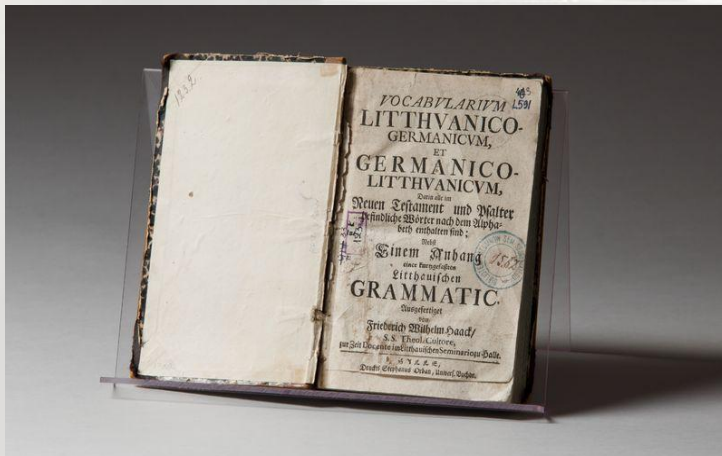 1232
443
L591
VOCABVLARIVM
LITTHVANICO-
GERMANICVM,
ET
GERMANICO-
LITTHVANICVM,
Darin alle im
Neuen Testament und Psalter
befindliche Wörter nach dem Alpha-
beth enthalten sind;
Nebst
Einem Anhang
einer kurtzgefaßten
Litthauischen
GRAMMATIC.
Ausgefertiget
von
Friederich Wilhelm Haack/
S.S. Theol. Cultore,
zur Zeit Docente im Litthauischen Seminario zu Halle.
HALLE,
Druckts Stephanus Orban, Univers. Buchdr.